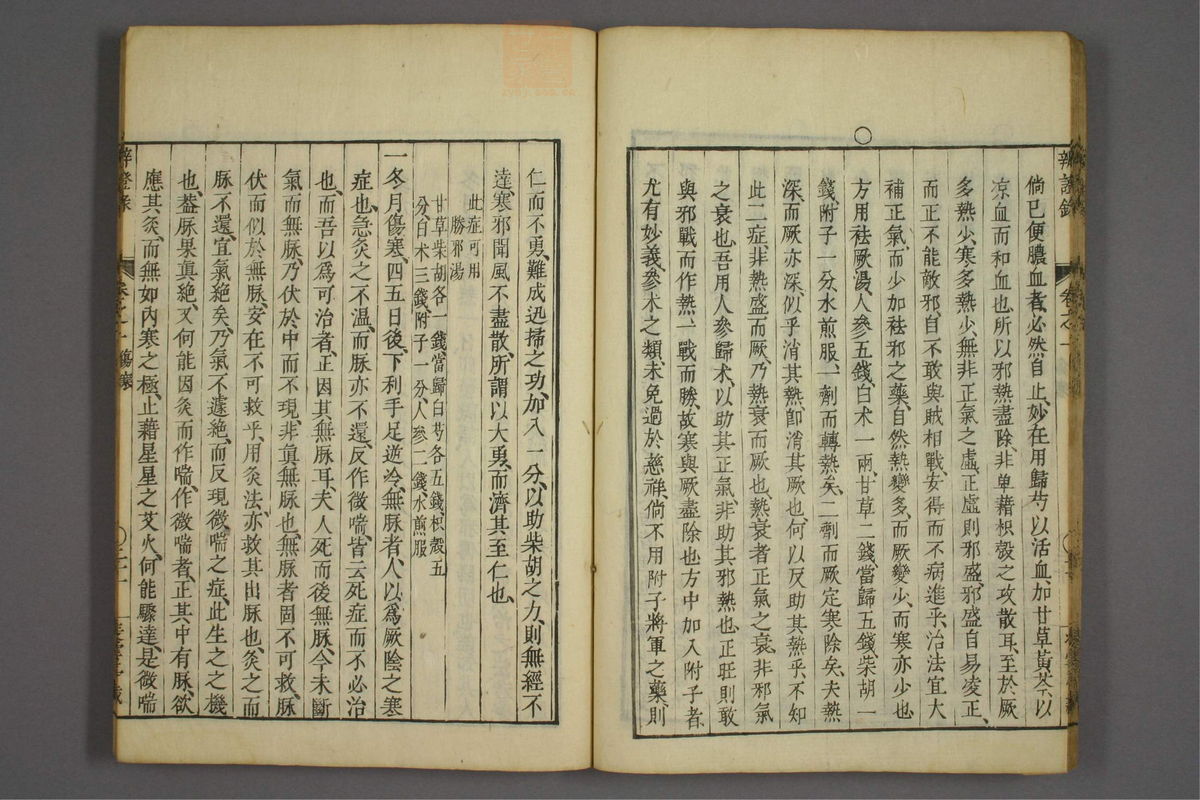 倘已便膿血者、必然自止、妙在用歸芍以活血、加甘草黃芩以
凉血而和血也、所以邪熱盡除、非单藉枳殼之攻散耳、至於厥
多熱少、寒多熱少、無非正氣之虛、正虛則邪盛、邪盛自易凌正、
而正不能敵邪、自不敢與賊相戰、安得而不病進乎、治法宜大
補正氣而少加袪邪之藥、自然熱變多、而厥變少、而寒亦少也
○
方用袪厥湯、人參五錢、白术一兩、甘草二錢、當歸五錢、柴胡一
錢、附子一分、水煎服、一劑而轉熱矣、二劑而厥定寒除矣、夫熱
深、而厥亦深、似乎消其熱、卽消其厥也、何以反助其熱乎、不知
此二症、非熱盛而厥、乃熱衰而厥也、熱衰者、正氣之衰、非邪氣
之衰也、吾用人參歸术、以助其正氣、非助其邪熱也、正旺則敢
與邪戰而作熱、一戰而勝、故寒與厥盡除也、方中加入附子者、
尤有妙義、參术之類、未免過於慈祥、倘不用附子將軍之藥、則
仁而不勇、難成迅掃之功、加入一分、以助柴胡之力、則無經不
達、寒邪聞風不盡散、所謂以大勇、而濟其至仁也、
此症可用
勝邪湯
甘草柴胡各一錢當歸白芍各五錢、枳殼五
分、白术三錢、附子一分、人參二錢、水煎服
一冬月傷寒、四五日後、下利手足逆冷、無脉者、人以爲厥陰之寒
症也、急灸之不溫、而脉亦不還、反作微喘、皆云死症而不必治
也、而吾以爲可治者、正因其無脉耳、夫人死而後無脉、今未斷
氣而無脉、乃伏於中而不現、非眞無脉也、無脉者固不可救、脉
伏而似於無脉、安在不可救乎、用灸法、亦救其出脉也、灸之而
脉不還、宜氣絶矣、乃氣不遽絶、而反現微喘之症、此生之之機
也、葢脉果眞絶、又何能因灸而作喘、作微喘者、正其中有脉、欲
應其灸、而無如內寒之極、止藉星星之艾火、何能驟達、是微喘